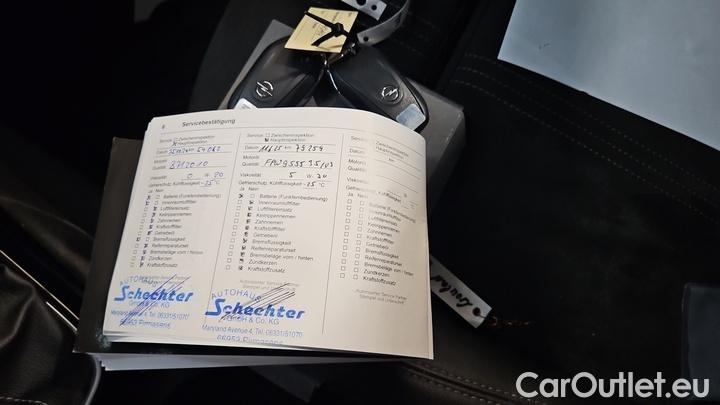 8 Servicebestätigung
Service: Zwischeninspektion
Hauptinspektion
Datum 54062
Motoröl
Qualität: 8712010
Viskosität 0 W 20
Gefrierschutz, Kühlflüssigkeit -25 °C
Ja Nein
Batterie (Funkfernbedienung)
Innenraumluftfilter
Luftfiltereinsatz
Keilrippenriemen
Zahnriemen
Kraftstofffilter
Getriebeöl
Bremsflüssigkeit
Reifenreparaturset
Bremsbeläge vorn / hinten
Zündkerzen
Kraftstoffzusatz
AUTOHAUS
Schechter
GmbH & Co. KG
Maryland Avenue 4, Tel. 06331/51070
66953 Pirmasens
Service: Zwischeninspektion
Hauptinspektion
Datum 11.6.25 km 79259
Motoröl
Qualität:
Viskosität: 5 W 30
Gefrierschutz, Kühlflüssigkeit -25 °C
Ja Nein
Batterie (Funkfernbedienung)
Innenraumluftfilter
Luftfiltereinsatz
Keilrippenriemen
Zahnriemen
Kraftstofffilter
Getriebeöl
Bremsflüssigkeit
Reifenreparaturset
Bremsbeläge vorn / hinten
Zündkerzen
Kraftstoffzusatz
Autorisierter Service Partner
Stempel und
AUTOHAUS
Schechter
GmbH & Co. KG
Maryland Avenue 4, Tel. 06331/51070
66953 Pirmasens
Service: Zwischeninspektion
Hauptinspektion
Datum km
Motoröl
Qualität:
Viskosität: W
Gefrierschutz, Kühlflüssigkeit °C
Ja Nein
Batterie (Funkfernbedienung)
Innenraumluftfilter
Luftfiltereinsatz
Keilrippenriemen
Zahnriemen
Kraftstofffilter
Getriebeöl
Bremsflüssigkeit
Reifenreparaturset
Bremsbeläge vorn / hinten
Zündkerzen
Kraftstoffzusatz
Autorisierter Service Partner
Stempel und Unterschrift
CarOutlet.eu